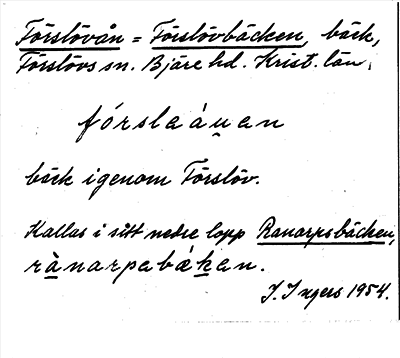 Förslövån = Förslövbäcken, bäck,
Förslövs sn. Bjäre hd. Krist. län.
fórslaáu̠an
bäck igenom Förslöv.
Kallas i sitt nedre lopp Ranarpsbäcken,
rànarpabák̠an.
I. Ingers 1954.